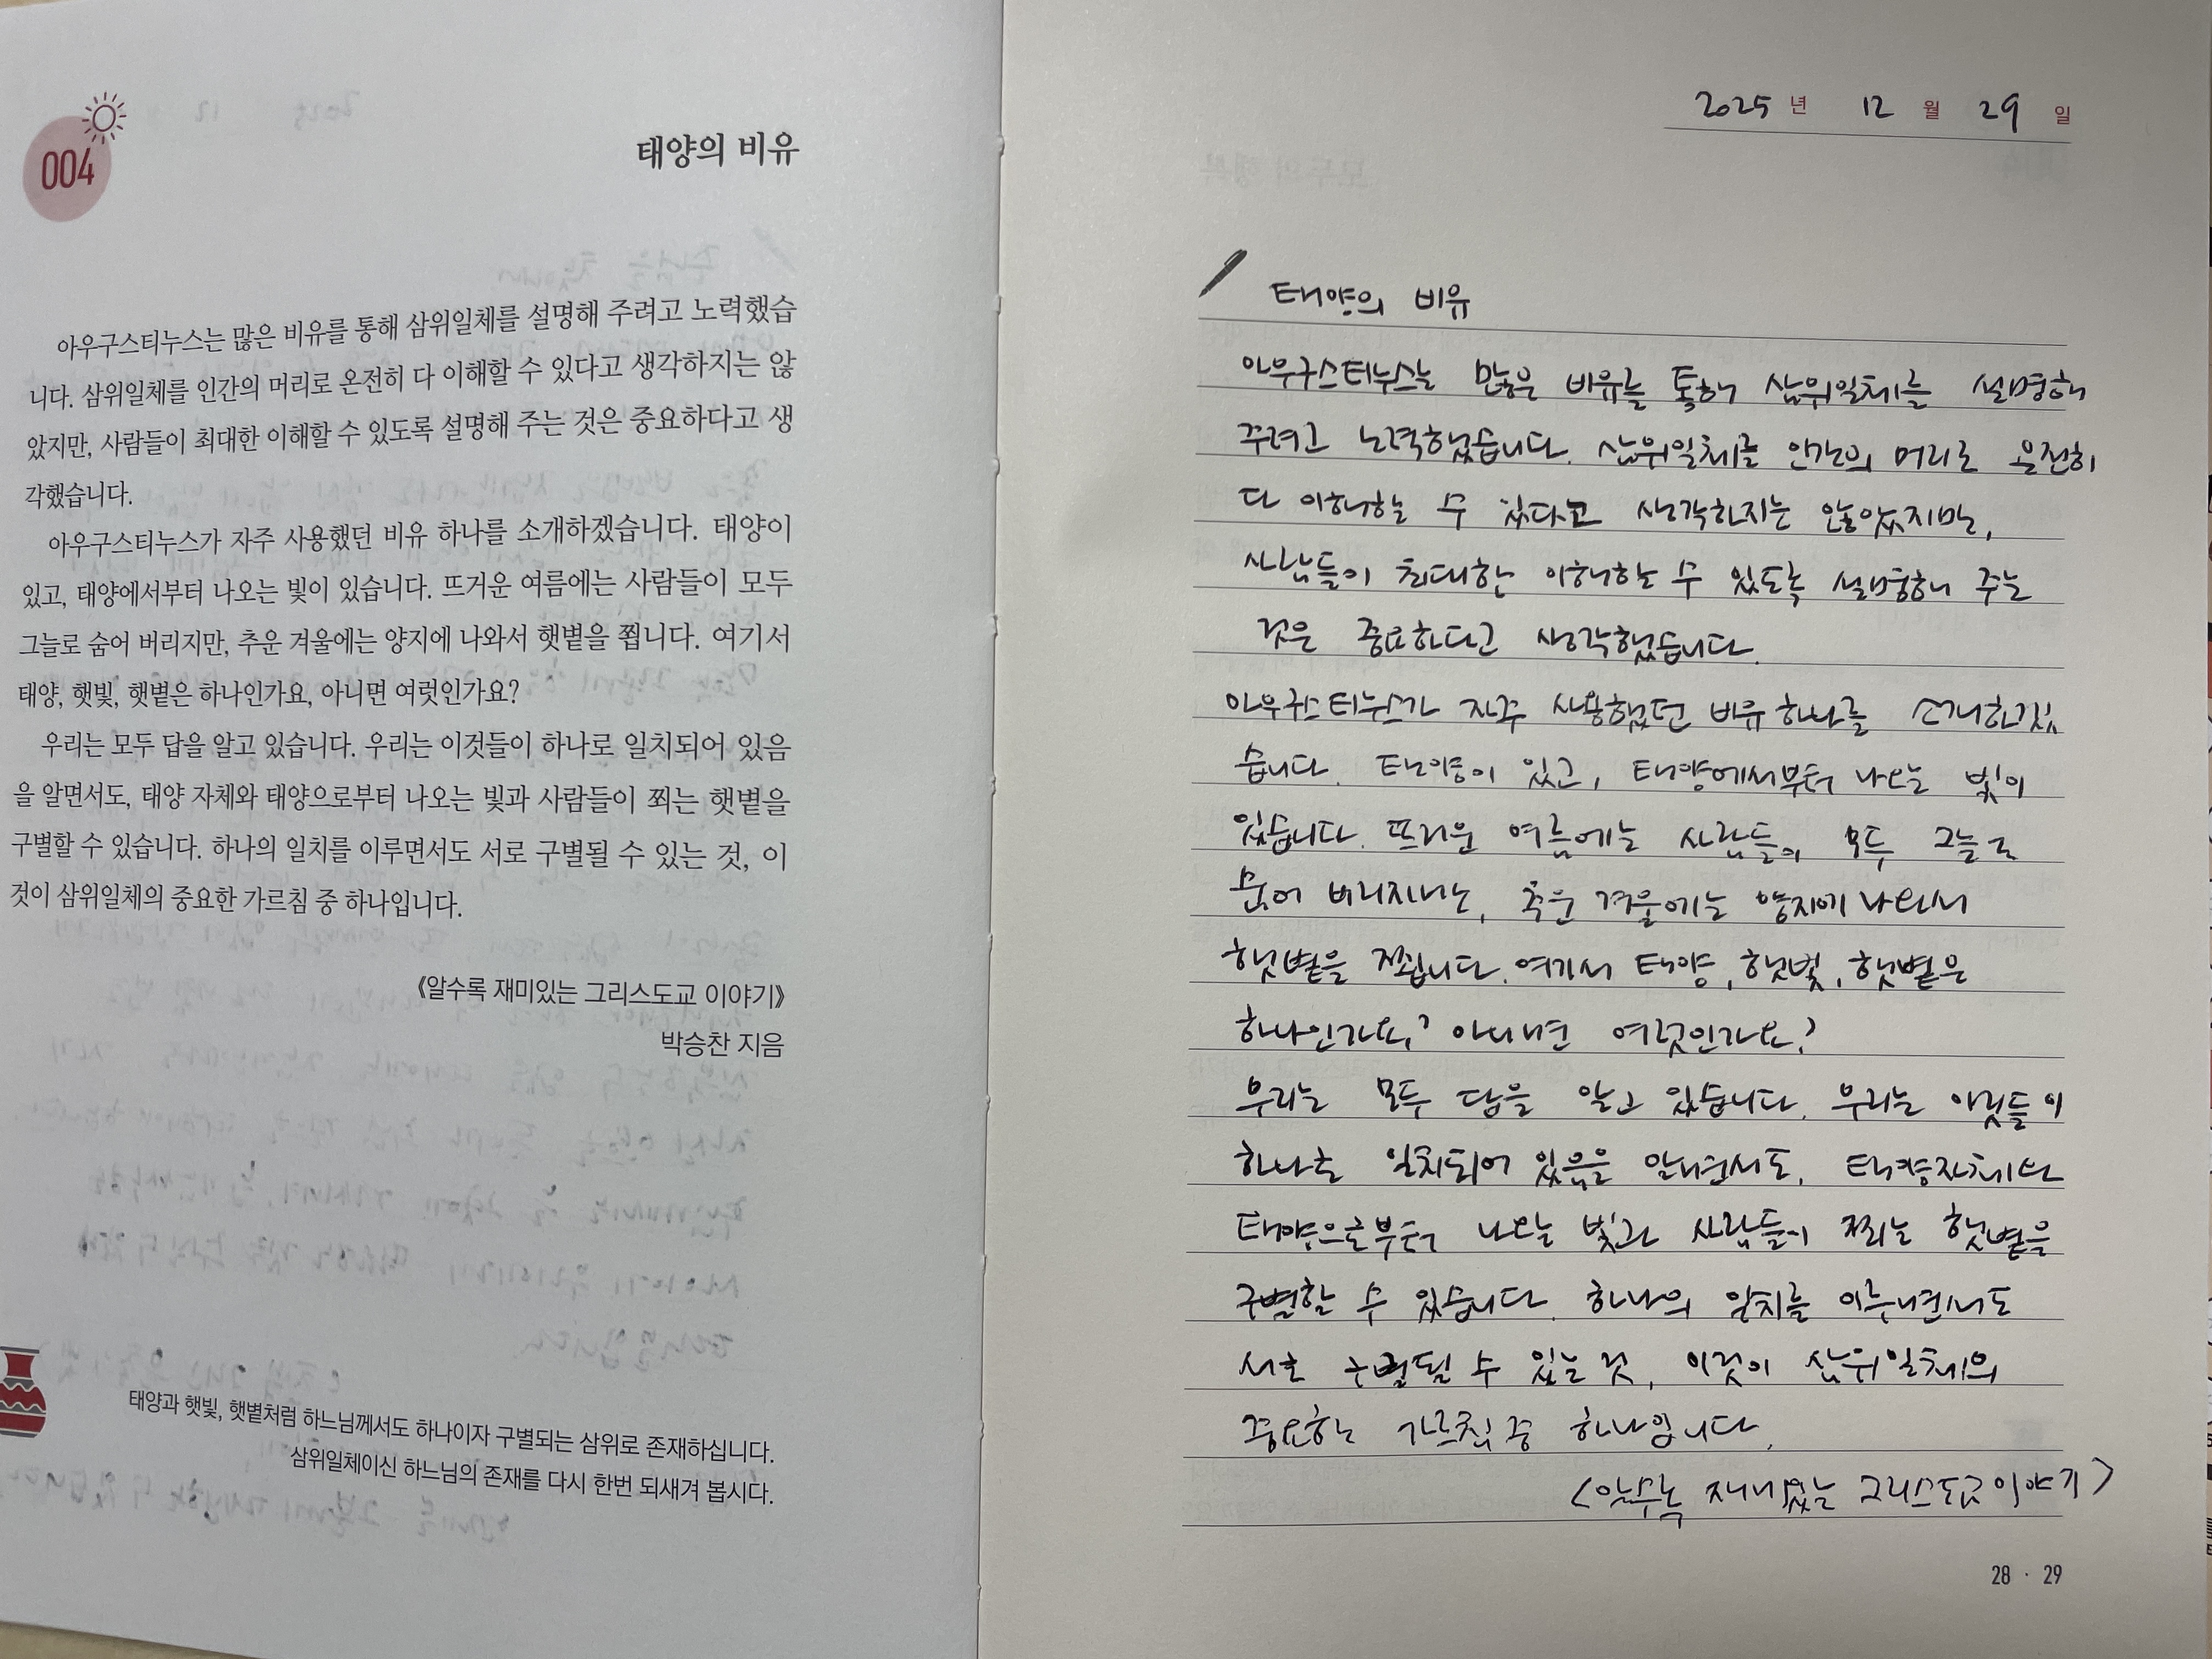 004
태양의 비유
아우구스티누스는 많은 비유를 통해 삼위일체를 설명해 주려고 노력했습
니다. 삼위일체를 인간의 머리로 온전히 다 이해할 수 있다고 생각하지는 않
았지만, 사람들이 최대한 이해할 수 있도록 설명해 주는 것은 중요하다고 생
각했습니다.
아우구스티누스가 자주 사용했던 비유 하나를 소개하겠습니다. 태양이
있고, 태양에서부터 나오는 빛이 있습니다. 뜨거운 여름에는 사람들이 모두
그늘로 숨어 버리지만, 추운 겨울에는 양지에 나와서 햇볕을 쬡니다. 여기서
태양, 햇빛, 햇볕은 하나인가요, 아니면 여럿인가요?
우리는 모두 답을 알고 있습니다. 우리는 이것들이 하나로 일치되어 있음
을 알면서도, 태양 자체와 태양으로부터 나오는 빛과 사람들이 쬐는 햇볕을
구별할 수 있습니다. 하나의 일치를 이루면서도 서로 구별될 수 있는 것, 이
것이 삼위일체의 중요한 가르침 중 하나입니다.
《알수록 재미있는 그리스도교 이야기》
박승찬 지음
태양과 햇빛, 햇볕처럼 하느님께서도 하나이자 구별되는 삼위로 존재하십니다.
삼위일체이신 하느님의 존재를 다시 한번 되새겨 봅시다.
2025 년 12 월 29 일
태양의 비유
아우구스티누스는 많은 비유를 통해 삼위일체를 설명해
주려고 노력했습니다. 삼위일체를 인간의 머리로 온전히
다 이해할 수 있다고 생각하지는 않았지만,
사람들이 최대한 이해할 수 있도록 설명해 주는
것은 중요하다고 생각했습니다.
아우구스티누스가 자주 사용했던 비유 하나를 소개하겠
습니다. 태양이 있고, 태양에서부터 나오는 빛이
있습니다. 뜨거운 여름에는 사람들이 모두 그늘로
숨어 버리지만, 추운 겨울에는 양지에 나와서
햇볕을 쬡니다. 여기서 태양, 햇빛, 햇볕은
하나인가요? 아니면 여럿인가요?
우리는 모두 답을 알고 있습니다. 우리는 이것들이
하나로 일치되어 있음을 알면서도, 태양자체와
태양으로부터 나오는 빛과 사람들이 쬐는 햇볕을
구별할 수 있습니다. 하나의 일치를 이루면서도
서로 구별될 수 있는 것, 이것이 삼위일체의
중요한 가르침 중 하나입니다.
<알수록 재미있는 그리스도교 이야기>
28 · 29